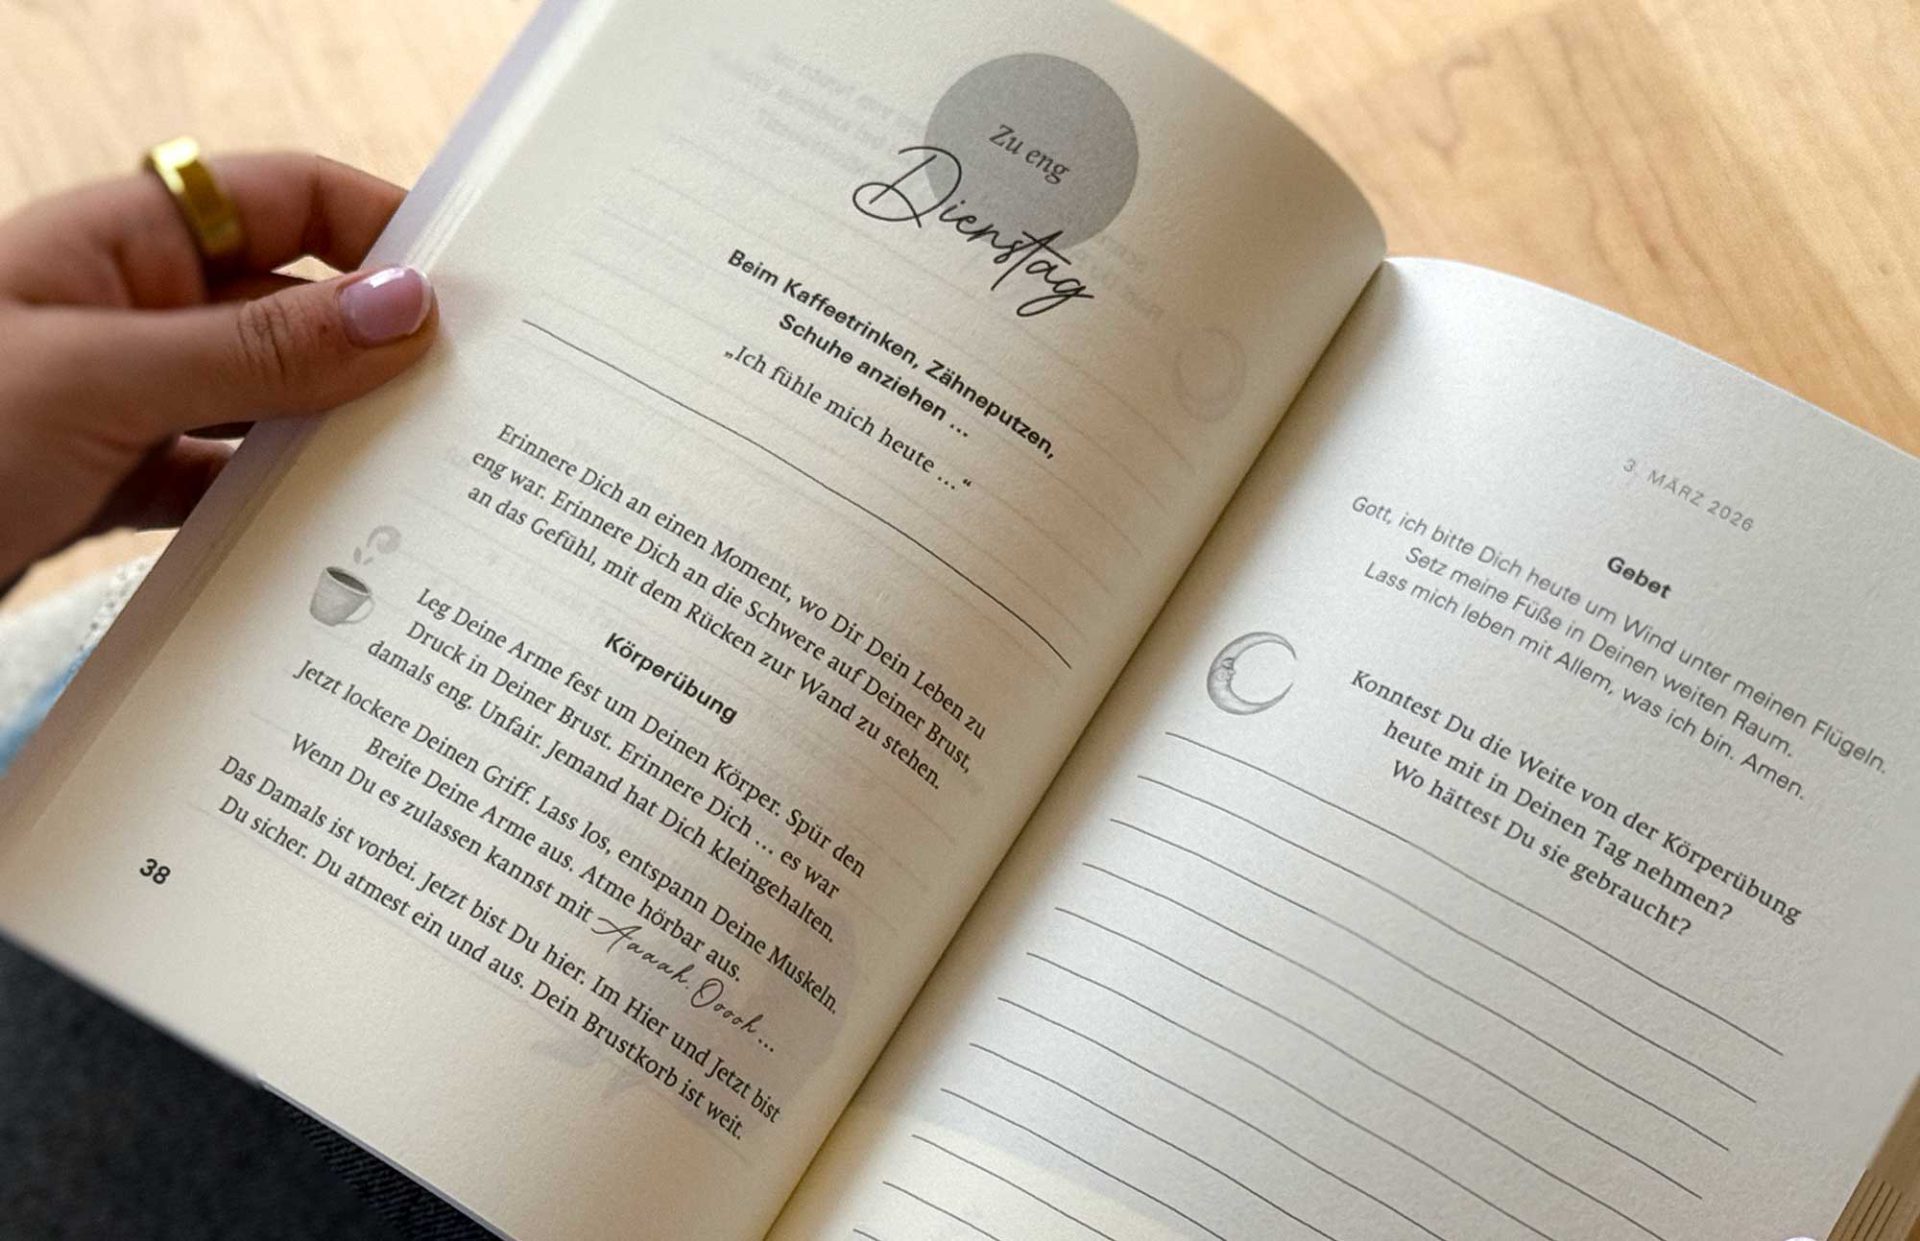 Zu eng
Dienstag
Beim Kaffeetrinken, Zähneputzen,
Schuhe anziehen ...
„Ich fühle mich heute ...“
Erinnere Dich an einen Moment, wo Dir Dein Leben zu
eng war. Erinnere Dich an die Schwere auf Deiner Brust,
an das Gefühl, mit dem Rücken zur Wand zu stehen.
Körperübung
Leg Deine Arme fest um Deinen Körper. Spür den
Druck in Deiner Brust. Erinnere Dich ... es war
damals eng. Unfair. Jemand hat Dich kleingehalten.
Jetzt lockere Deinen Griff. Lass los, entspann Deine Muskeln.
Breite Deine Arme aus. Atme hörbar aus.
Wenn Du es zulassen kannst mit Aaaah. Ooooh ...
Das Damals ist vorbei. Jetzt bist Du hier. Im Hier und Jetzt bist
Du sicher. Du atmest ein und aus. Dein Brustkorb ist weit.
38
3. MÄRZ 2026
Gebet
Gott, ich bitte Dich heute um Wind unter meinen Flügeln.
Setz meine Füße in Deinen weiten Raum.
Lass mich leben mit Allem, was ich bin. Amen.
Konntest Du die Weite von der Körperübung
heute mit in Deinen Tag nehmen?
Wo hättest Du sie gebraucht?